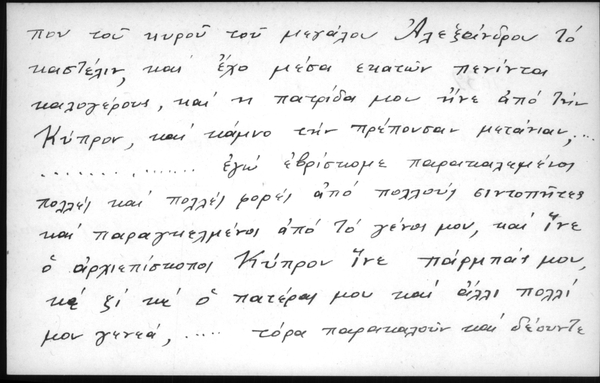 που τοῦ κυροῦ τοῦ μεγάλου Ἀλεξάνδρου τό
καστέλιν, καί ἔχο μέσα εκατών πενίντα
καλογέρους, καί η πατρίδα μου ἤνε ἀπό τήν
Κύπρον, καί κάμνο τήν πρέπουσαν μετάνιαν,....
.............. ἐγώ ἐβρίσκομε παρακαλεμένος
πολλές καί πολλές φορές ἀπό πολλούς σιντοπῆτες
καί παραγκελμένος ἀπό τό γένος μου, καί ἶνε
ὁ ἀρχιεπίσκοπος Κύπρου ἶνε πάρμπας μου,
κέ ξί κέ ὁ πατέρας μου καί ἄλλι πολλί
μου γενεά, ..... τόρα παρακαλοῦν καί δέουντε